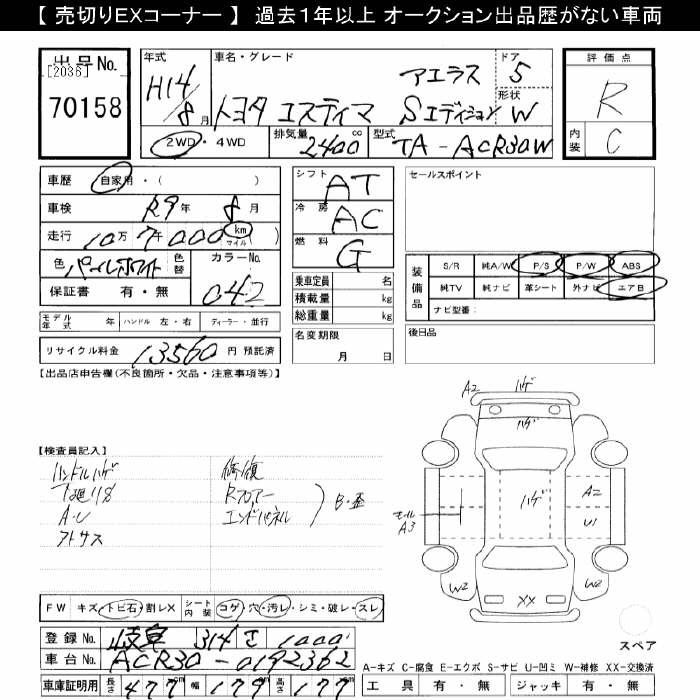 【 売切りEXコーナー 】 過去1年以上 オークション出品歴がない車両
出品No.
[2036]
70158
年式
H14/8月
車名・グレード
アエラス
トヨタ エスティマ Sエディション
ドア
5
形状
W
2WD・4WD
排気量
2400cc
型式
TA-ACR30W
評価点
R
内装
C
車歴 自家用・( )
車検 R9年 8月
走行 10万7千000 km マイル
色 パールホワイト 色替 カラーNo.
042
保証書 有・無
モデル年式 年 ハンドル 左・右 ディーラー・並行
リサイクル料金 13560 円 預託済
シフト AT
冷房 AC
燃料 G
乗車定員 名
積載量 kg
総重量 kg
名変期限
月 日
セールスポイント
装備品
S/R 純A/W P/S P/W ABS
純TV 純ナビ 革シート 外ナビ エアB
ナビ型番:
後日品
【出品店申告欄(不良箇所・欠品・注意事項等)】
【検査員記入】
ハンドルハゲ
下廻りS
A・U
アトサス
修復
Rフロアー
エンドパネル
B・歪
A2 ハゲ
ハゲ
ハゲ
A2
U1
モール
A3
W2
W2
XX
FW キズ・トビ石・割レX シート内装 コゲ・穴・汚レ・シミ・破レ・スレ
登録No. 岐阜 314 せ 1000
車台No. ACR30-0192362
車庫証明用 長さ 477cm 幅 179cm 高さ 177cm
スペア
A-キズ C-腐食 E-エクボ S-サビ U-凹ミ W-補修 XX-交換済
工具 有・無 ジャッキ 有・無